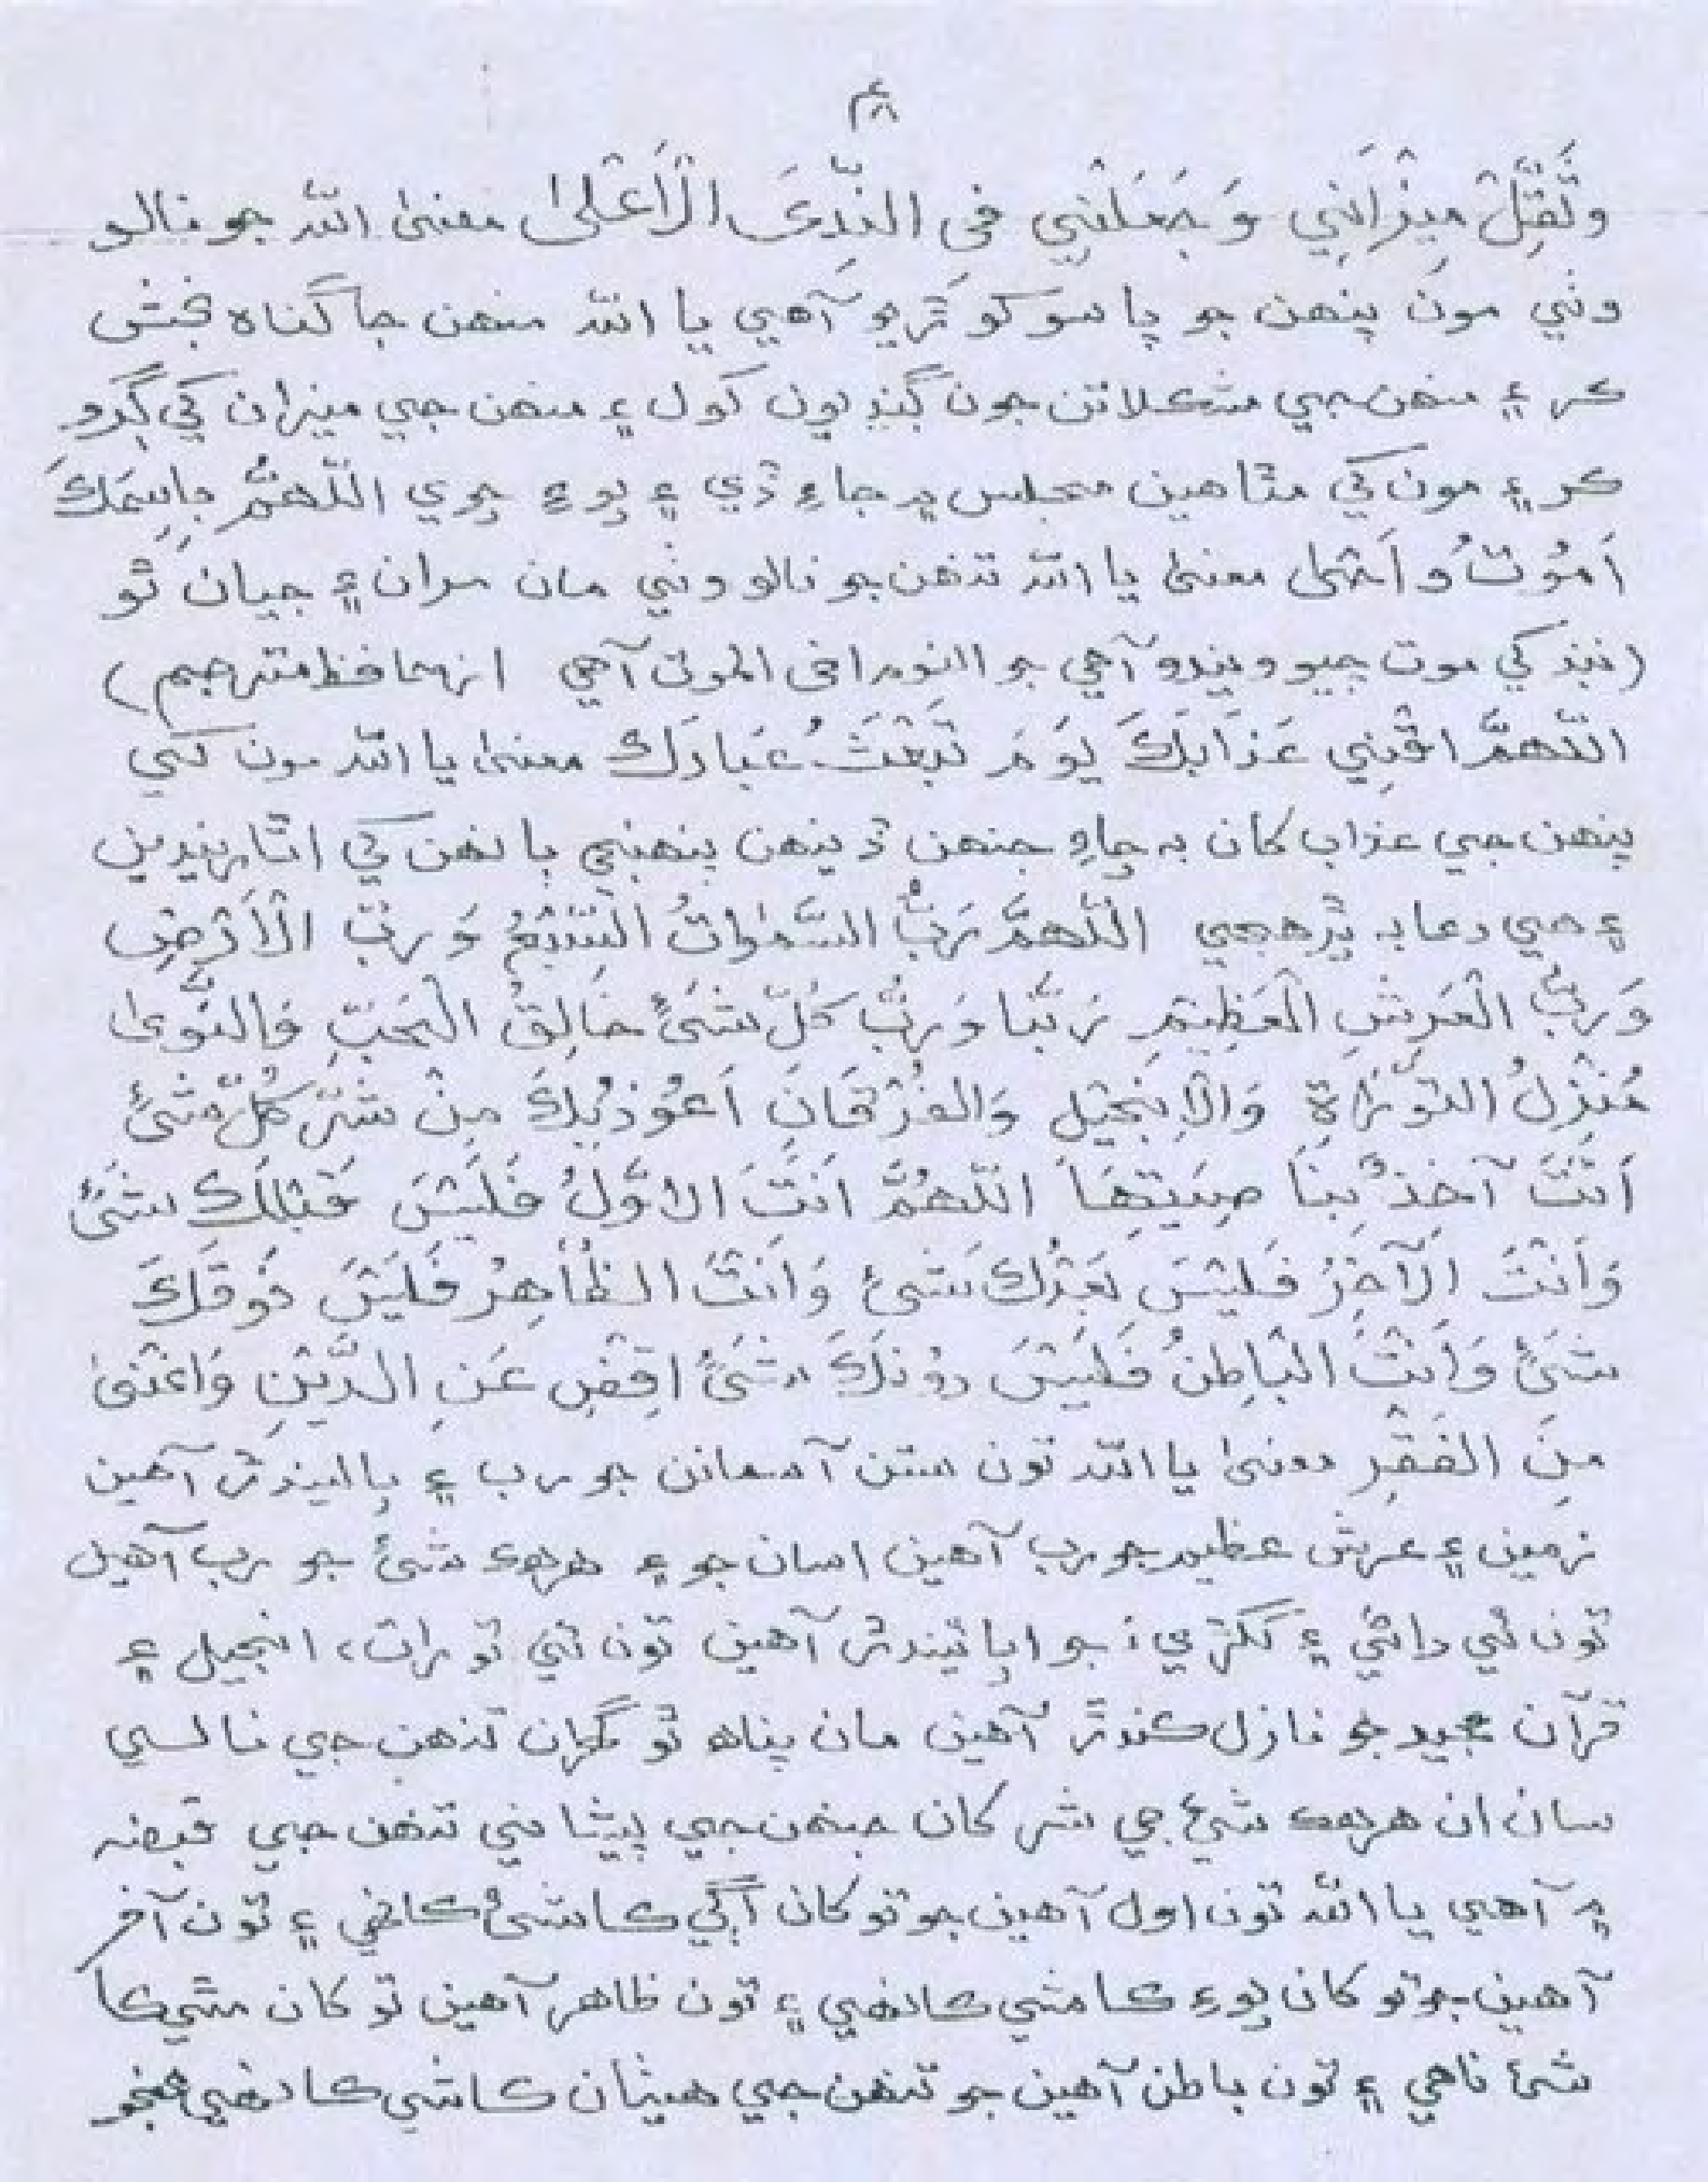 ۴۸
وَثَقِّلْ مِيْزَانِي وَجَعَلْنِي فى النِّدِىَ الْاَعْلىٰ معنىٰ اللّٰه جو نالو
وٺي مون پنهن جو پاسو کوڙيو آهي يا اللّٰه منهن جا گناه بخش
ڪر ۽ منهن جي مشڪلاتن جون ڳنڍيون کول ۽ منهن جي ميزان کي ڳرو
ڪر ۽ مون کي مٿاهين مجلس ۾ جاءِ ڏي ۽ پوءِ چوي اللّٰهُمَّ بِاسِمَكَ
اَمُوْتُ وَاَحْىٰ معنىٰ يا اللّٰه تنهن جو نالو وٺي مان مران ۽ جيان ٿو
(ننڊ کي موت چيو ويندو آهي جو النوم اخى الموت آهي از حافظ مترجم)
اللّٰهمَّ اقْنِي عَذَابَكَ يَوْمَ تَبْعَثُ عِبَادَكَ معنىٰ يا اللّٰه مون کي
پنهن جي عذاب کان بچاءِ جنهن ڏينهن پنهنجي بانهن کي اٿاريندين
۽ هي دعا به پڙهجي اللّٰهمَّ رَبُّ السَّمٰواتُ السَّبْعُ وَرَبُّ الْاَرْضِ
وَرَبُّ الْعَرْشِ الْعَظِيْمِ رَبَّنَا وَرَبُّ كُلِّ شَىْءً خَالِقُ الْحَبِّ وَالنَّوىٰ
مُنْزِلُ التَّوْرَاةِ وَالْاِنْجِيْلِ وَالفُرْقَانَ اَعُوْذُبِكَ مِنْ شَرِّ كُلِّ شَىْءً
اَنْتَ آخِذُ بِنَا صِيَتِهَا اللّٰهُمَّ اَنْتَ الاَوَّلُ فَلَيْسَ قَبْلَكَ شَىْءً
وَاَنْتَ الْآخِرُ فَلَيْسَ بَعْدَكَ شَىْءً وَاَنْتَ الظَّاهِرُ فَلَيْسَ فَوْقَكَ
شَىْءً وَاَنْتَ الْبَاطِنُ فَلَيْسَ دُوْنَكَ شَىْءً اِقْضِ عَنِ الدَّيْنِ وَاغْنِىٰ
مِنَ الفَقْرِ معنىٰ يا اللّٰه تون ستن آسمانن جو رب ۽ پاليندڙ آهين
زمين ۽ عرش عظيم جو رب آهين اسان جو ۽ هرهڪ شىءً جو رب آهين
تون ئي داڻي ۽ ککڙي جو اپائيندڙ آهين تون ئي تورات، انجيل ۽
قرآن مجيد جو نازل ڪندڙ آهين مان پناهه ٿو گهران تنهن جي نالي
سان ان هرهڪ شيءِ جي شر کان جنهن جي پيشاني تنهن جي قبضه
۾ آهي يا اللّٰه تون اول آهين جو تو کان اڳي ڪا شىءُ ڪانهي ۽ تون آخر
آهين جو تو کان پوءِ ڪا شي ڪانهي ۽ تون ظاهر آهين تو کان مٿي ڪا
شئ ناهي ۽ تون باطن آهين جو تنهن جي هيٺان ڪا شي ڪانهي